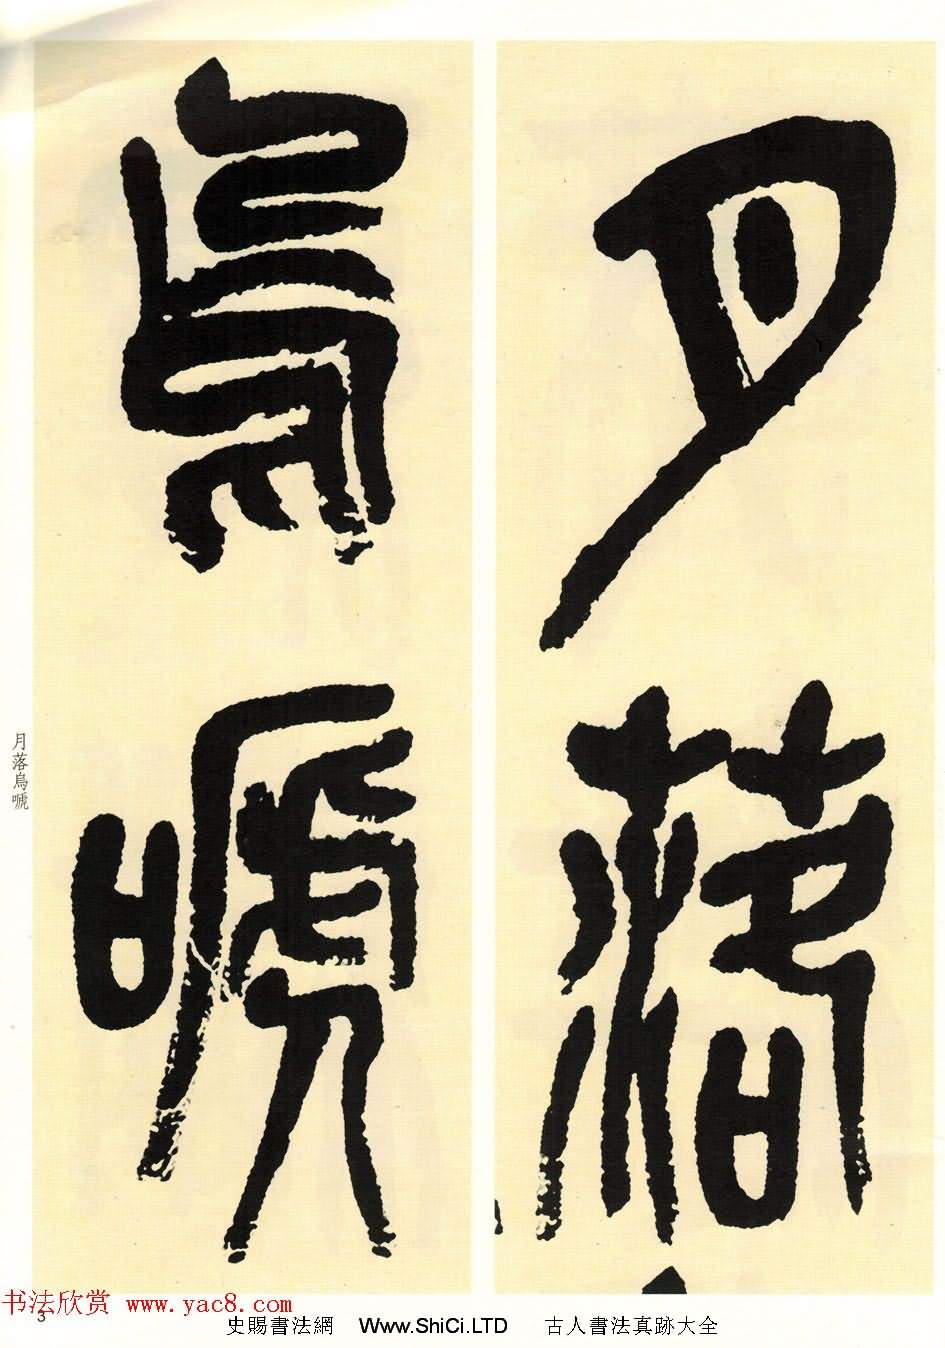 月落
烏嗁
月落烏嗁
书法欣赏 www.yac8.com
3
史賜書法網 Www.ShiCi.LTD 古人書法真跡大全